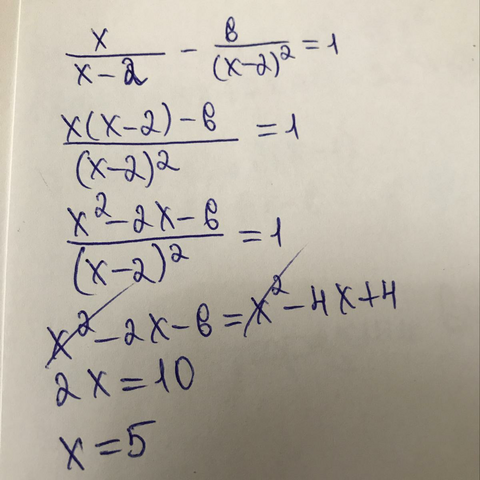 x/(x-2) - 6/(x-2)² = 1
(x(x-2)-6)/(x-2)² = 1
(x²-2x-6)/(x-2)² = 1
x²-2x-6=x²-4x+4
2x=10
x=5